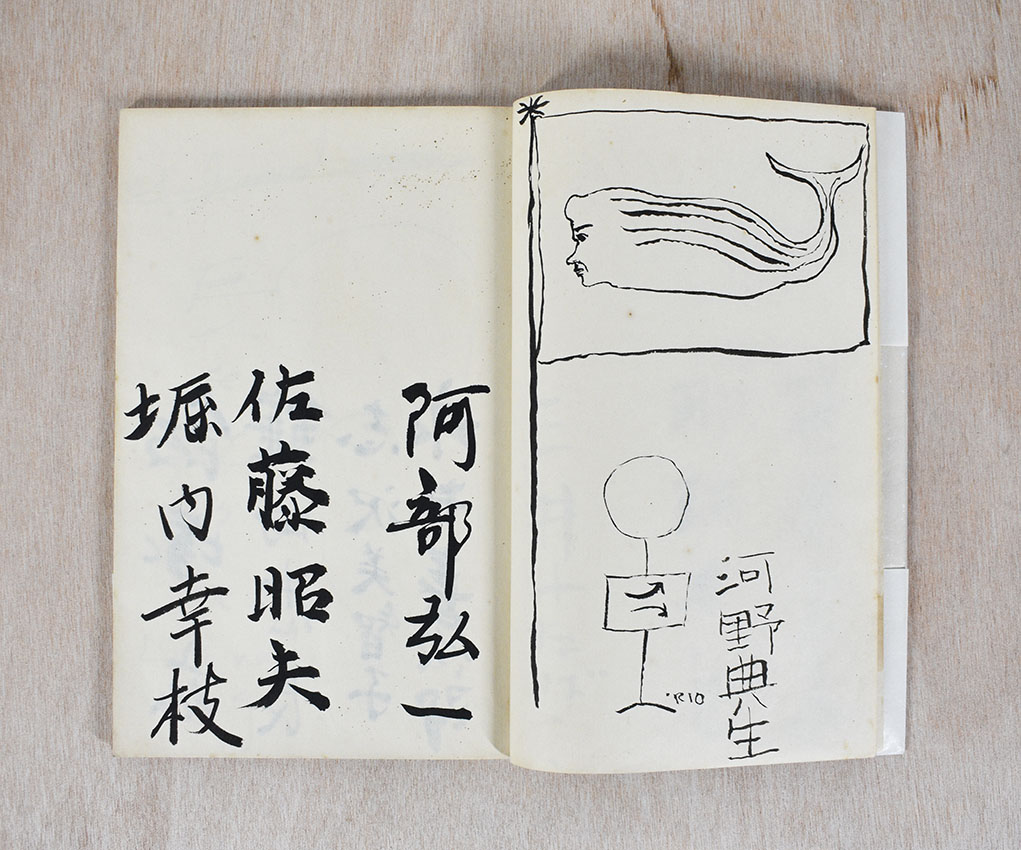 河野典生
RIO
阿部弘一
佐藤昭夫
堀内幸枝